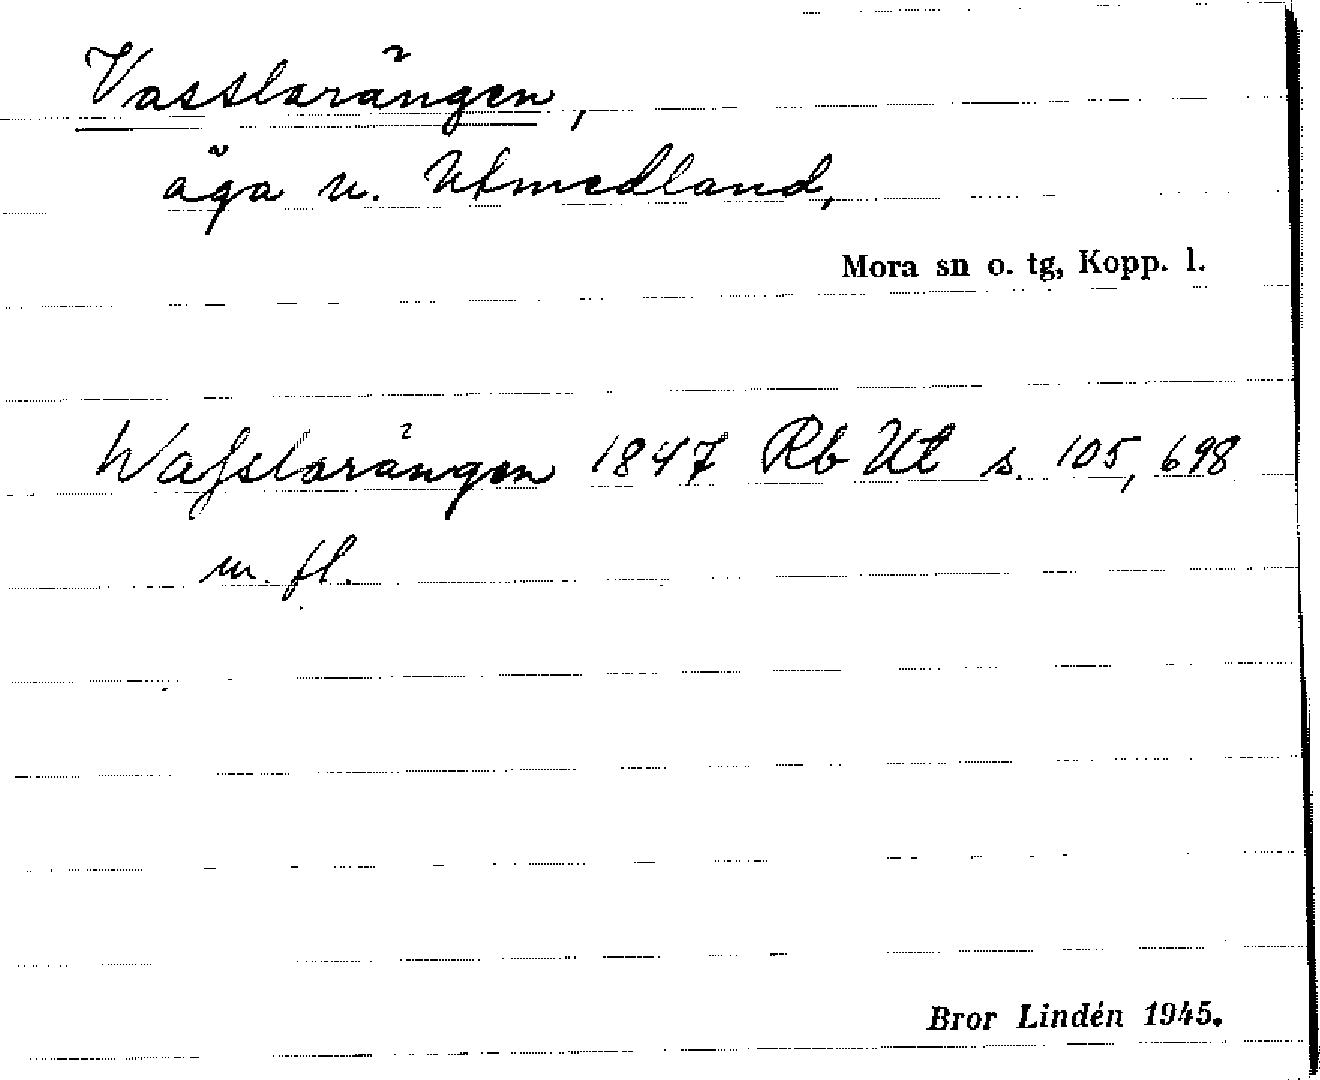 Vasslarängen,
äga u. Utmedland,
Mora sn o. tg, Kopp. l.
Wafslarängen 1847 Rb Ut s. 105, 698
m. fl.
Bror Lindén 1945.